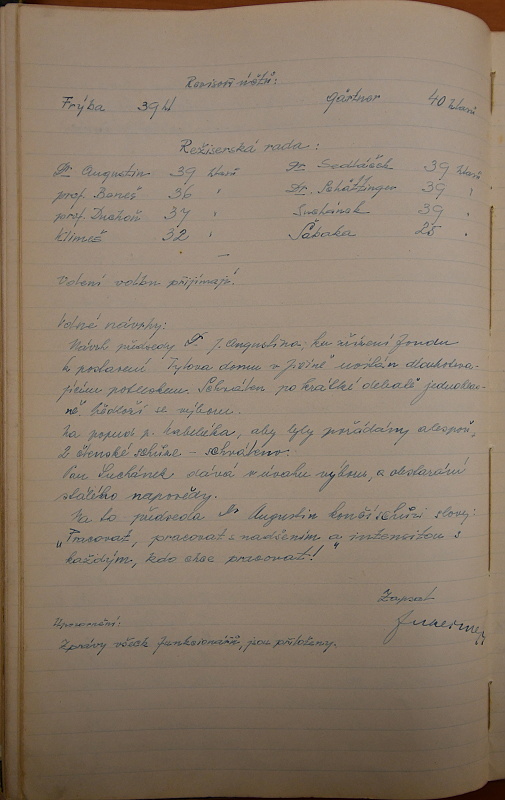 Revisoři účtů:
Frýba 39 hl Gärtner 40 hlasů
Režiserská rada:
Dr Augustin 39 hlasů Dr. Sedláček 39 hlasů
prof. Beneš 36 " Dr. Schätzinger 39 "
prof. Duchoň 37 " Suchánek 39 "
Klimeš 32 " Sábaka 25 "
Voleni volbu přijímají.
Volné návrhy:
Návrh předsedy Dr J. Augustina: ku zřízení fondu
k postavení Tylova domu v Jičíně
potleskem. Schválen po krátké debatě jednohlas-
ně výborem.
Na popud p. Kabelíka, aby byly pořádány alespoň
2 členské schůze – schváleno.
Pan Suchánek dává v úvahu výboru, obstarání
stálého napovědy.
Na to předseda Dr Augustin končí schůzi slovy:
„Pracovat, pracovat s nadšením a intensitou s
každým, kdo chce pracovat!"
Zapsal
Upozornění:
Zprávy všech funkcionářů, jsou přiloženy.